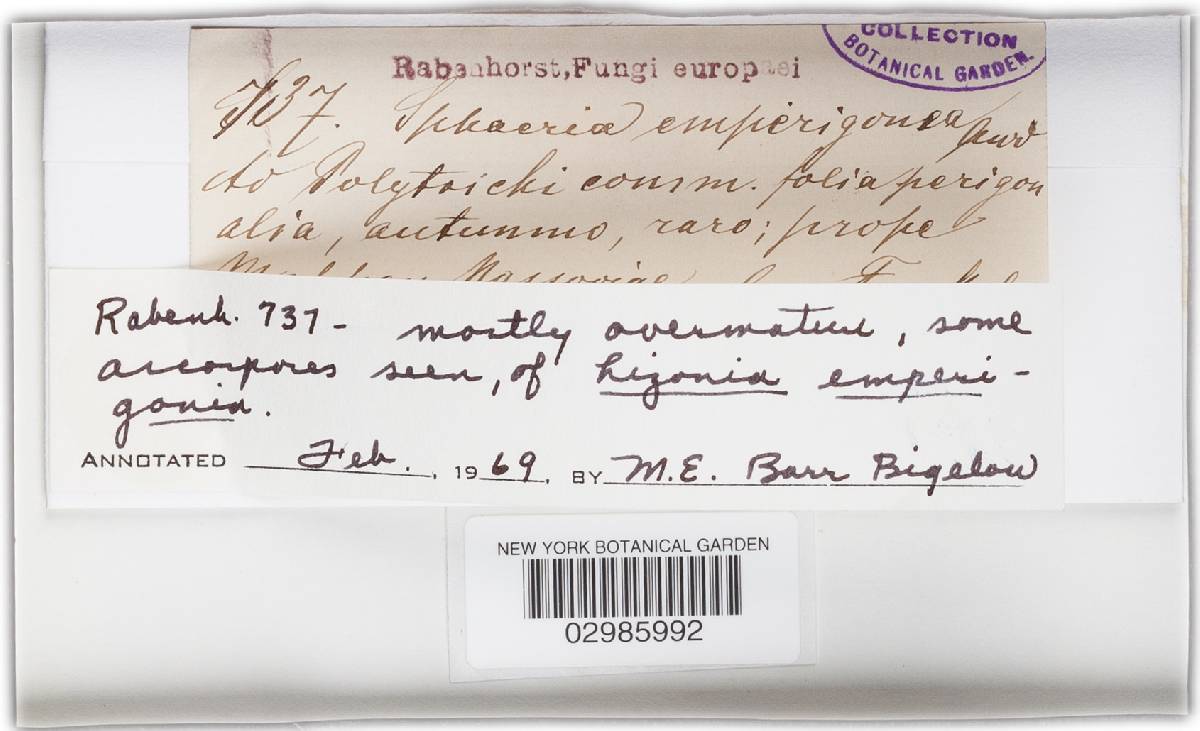 COLLECTION
BOTANICAL GARDEN.
Rabenhorst, Fungi europaei
737. Sphaeria emperigonia Auw
Ad Polytrichi comm. folia perigon
alia, autumno, raro; prope
Nassoviae
Rabenh. 737 - mostly overmature, some
ascospores seen, of Lizonia emperi-
gonia.
ANNOTATED Feb. , 1969 , BY M.E. Barr Bigelow
NEW YORK BOTANICAL GARDEN
02985992